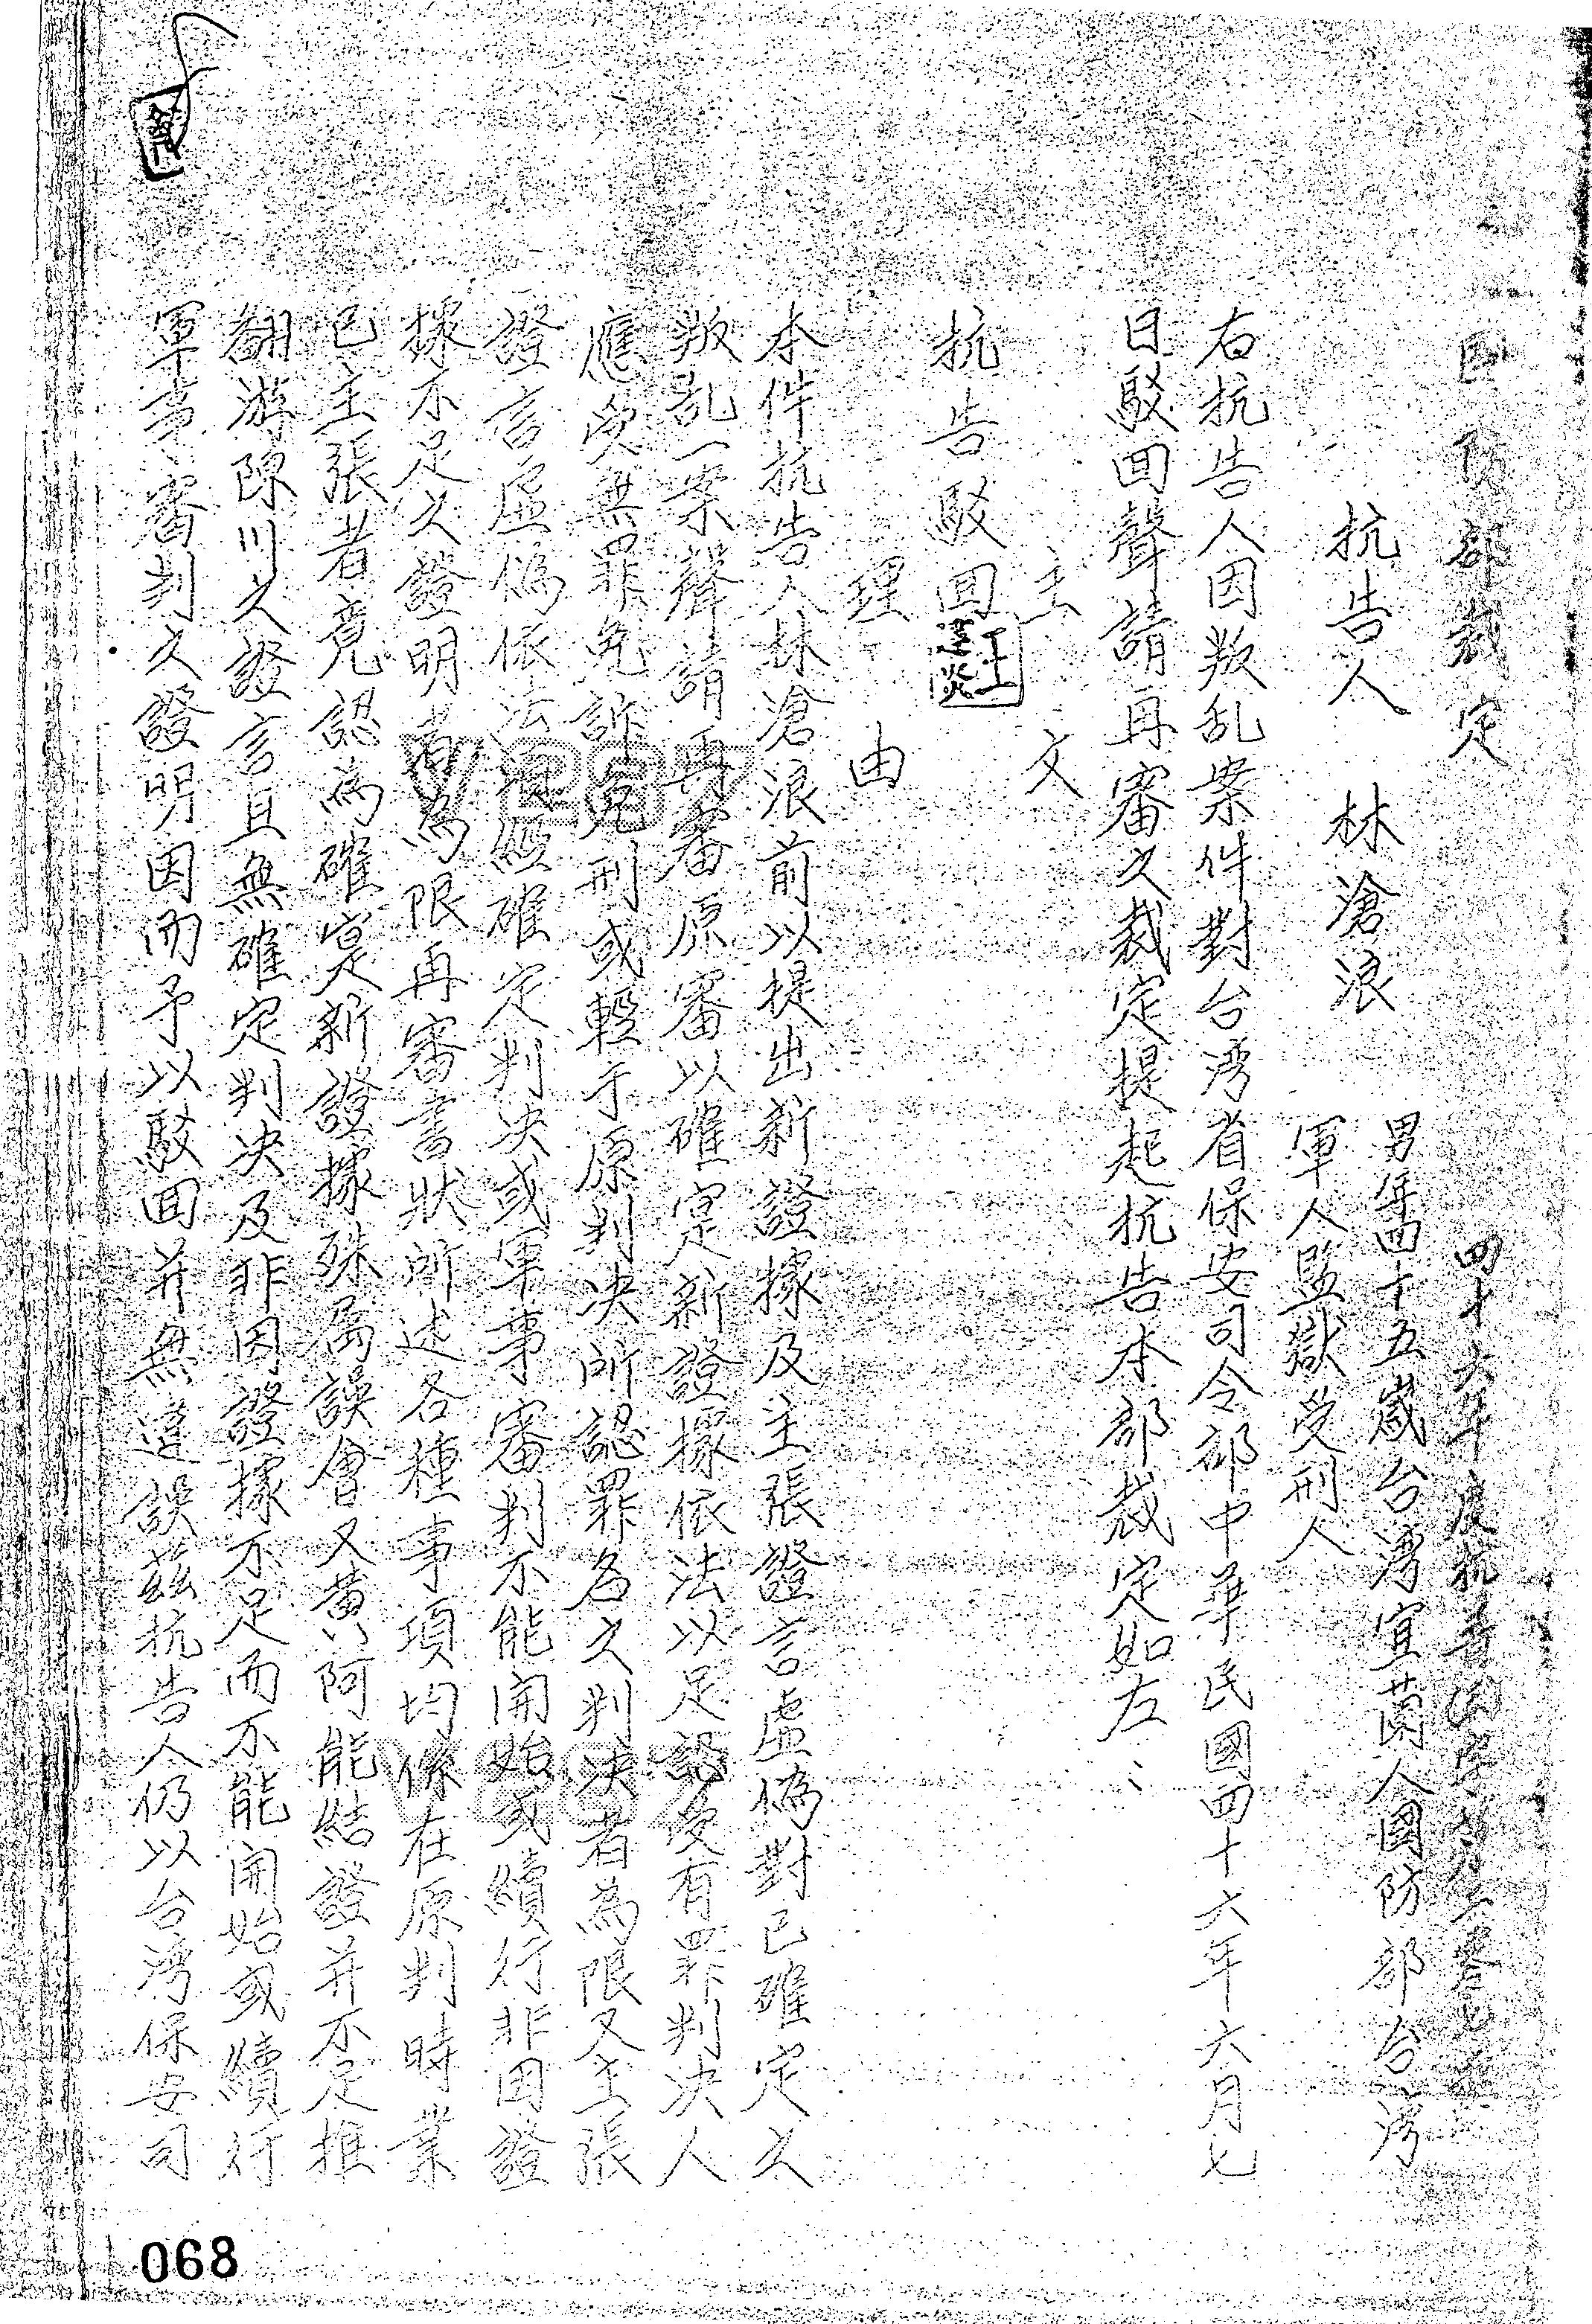 國防部裁定
四十六年度抗
抗告人 林滄浪
男年四十五歲台灣宜蘭人國防部台灣
軍人監獄受刑人
右抗告人因叛乱案件對台灣省保安司令部中華民國四十六年六月七
日駁回聲請再審之裁定提起抗告本部裁定如左：
主文
抗告駁回
理由
本件抗告人林滄浪前以提出新證據及主張證言虛偽對已確定之
叛乱一案聲請再審原審以確寔新證據依法以足認受有罪判决人
應受無罪免訴免刑或輕于原判决所認罪名之判决者為限又主張
證言虛偽依法須經確定判决或軍事審判不能開始或續行非因證
據不足之證明者為限再審書狀所述各種事項均係在原判時業
已主張者竟認為確寔新證據殊屬誤會又黃阿能結證并不足推
翻游陳川之證言且無確定判决及非因證據不足而不能開始或續行
軍事審判之證明因而予以駁回并無違誤茲抗告人仍以台灣保安司
068